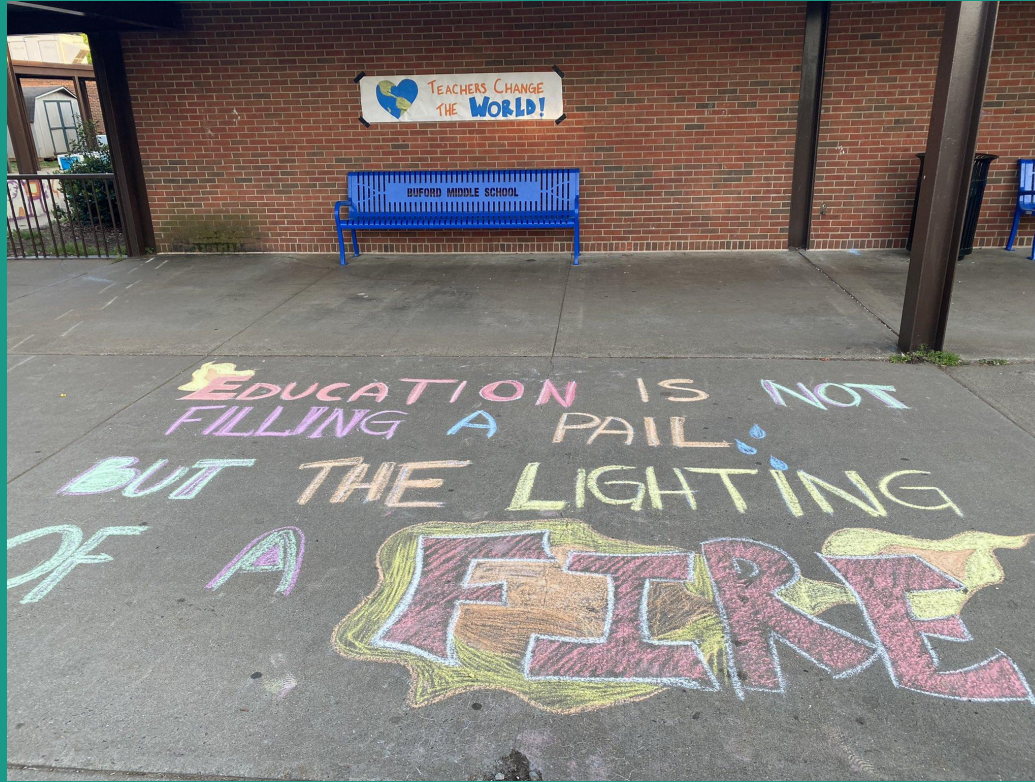 TEACHERS CHANGE
THE WORLD!
BUFORD MIDDLE SCHOOL
EDUCATION IS NOT
FILLING A PAIL
BUT THE LIGHTING
OF A FIRE